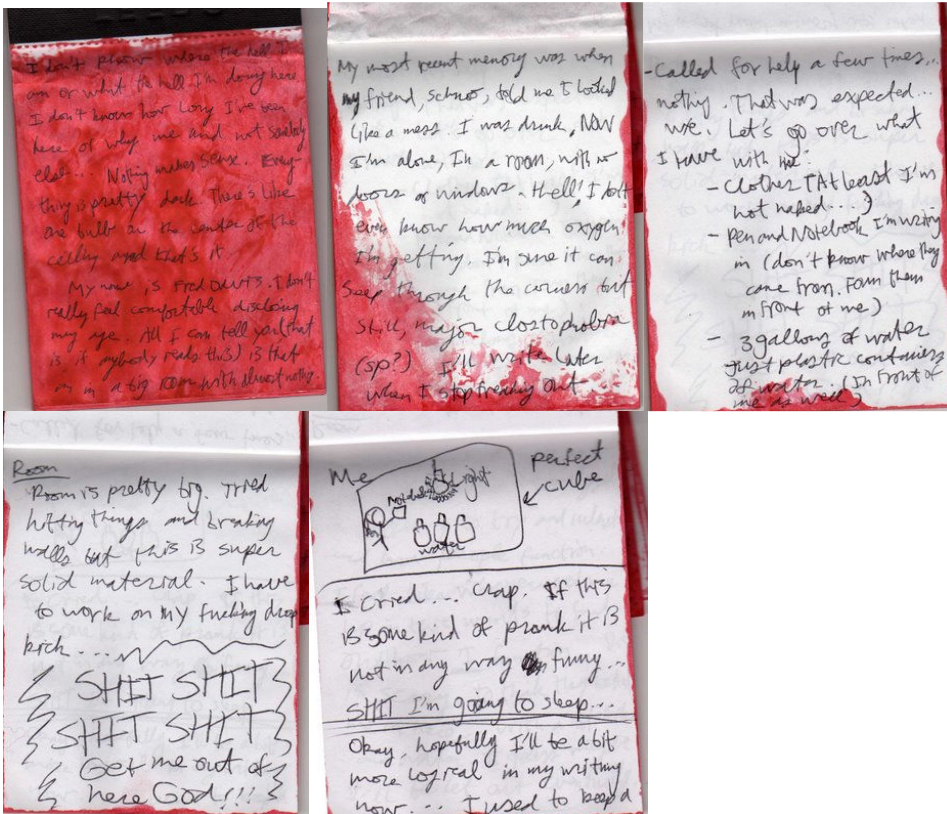 I don't know where the hell I
am or what the hell I'm doing here.
I don't know how long I've been
here or why me and not somebody
else... Nothing makes sense. Every-
thing is pretty dark. There's like
one bulb on the center of the
ceiling and that's it
My name is Fred Davis. I don't
really feel comfortable disclosing
my age. All I can tell you (that
is if anybody reads this) is that
in a big room with almost nothing.
My most recent memory was when
my friend, told me I looked
like a mess. I was drunk, NOW
I'm alone, In a room, with no
doors or windows. Hell! I don't
even know how much oxygen
I'm getting. I'm sure it can
seep through the corners but
still, major clostophobia
(sp?) I'll write later
when I stop freaking out
-Called for help a few times...
nothing. That was expected...
Let's go over what
I have with me:
- Clothes (At least I'm
not naked...)
- Pen and Notebook I'm writing
in (don't know where they
came from. Found them
in front of me)
- 3 gallons of water
Just plastic containers
of water. (In front of
me as well)
Room
Room is pretty big. Tried
hitting things and breaking
walls but this is super
solid material. I have
to work on my fucking drop
kick....
SHIT SHIT
SHIT SHIT
Get me out of
here God!!!
Me
Notebook
Light
water
perfect
cube
I cried... crap. If this
is some kind of prank it is
not in any way funny...
SHIT I'm going to sleep...
Okay, hopefully I'll be a bit
more logical in my writing
now.... I used to keep a